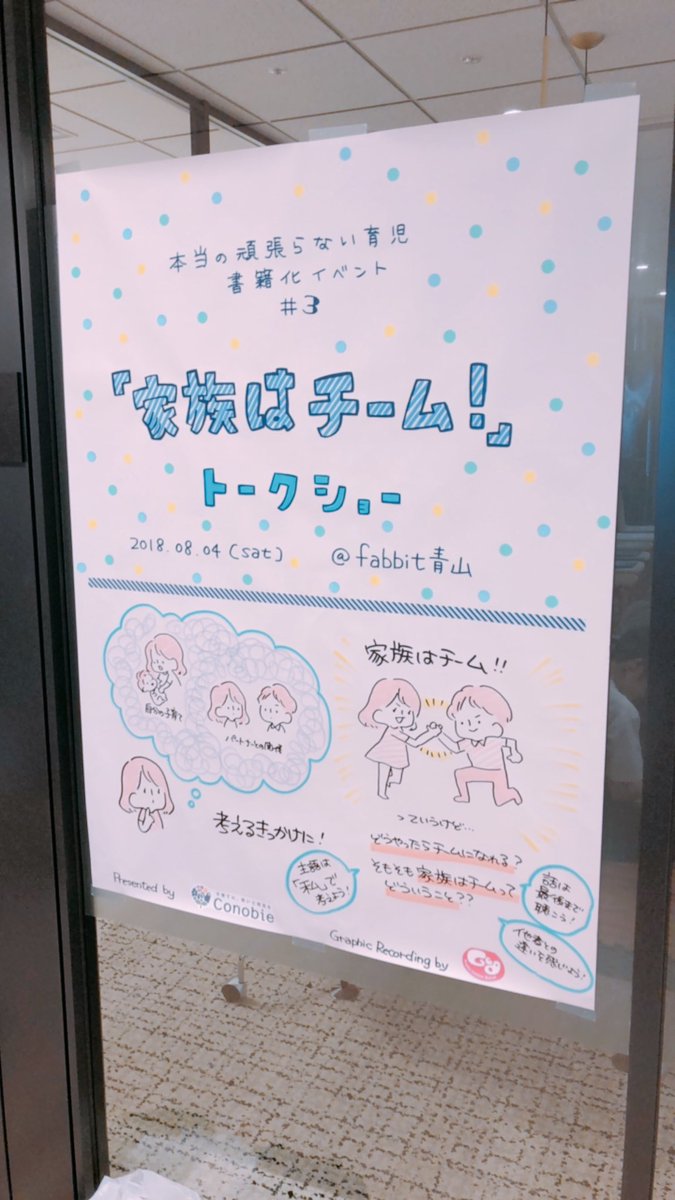 本当の頑張らない育児
書籍化イベント
#3
「家族はチーム!」
トークショー
2018.08.04(sat) @fabbit青山
自分の子育て
パートナーとの関係
考えるきっかけに!
家族はチーム!!
っていうけど…
どうやったらチームになれる?
そもそも家族はチームって
どういうこと??
主語は
「私」で
考えよう!
話は
最後まで
聴こう!
他者との
違いを感じよう!
Presented by
Conobie
Graphic Recording by